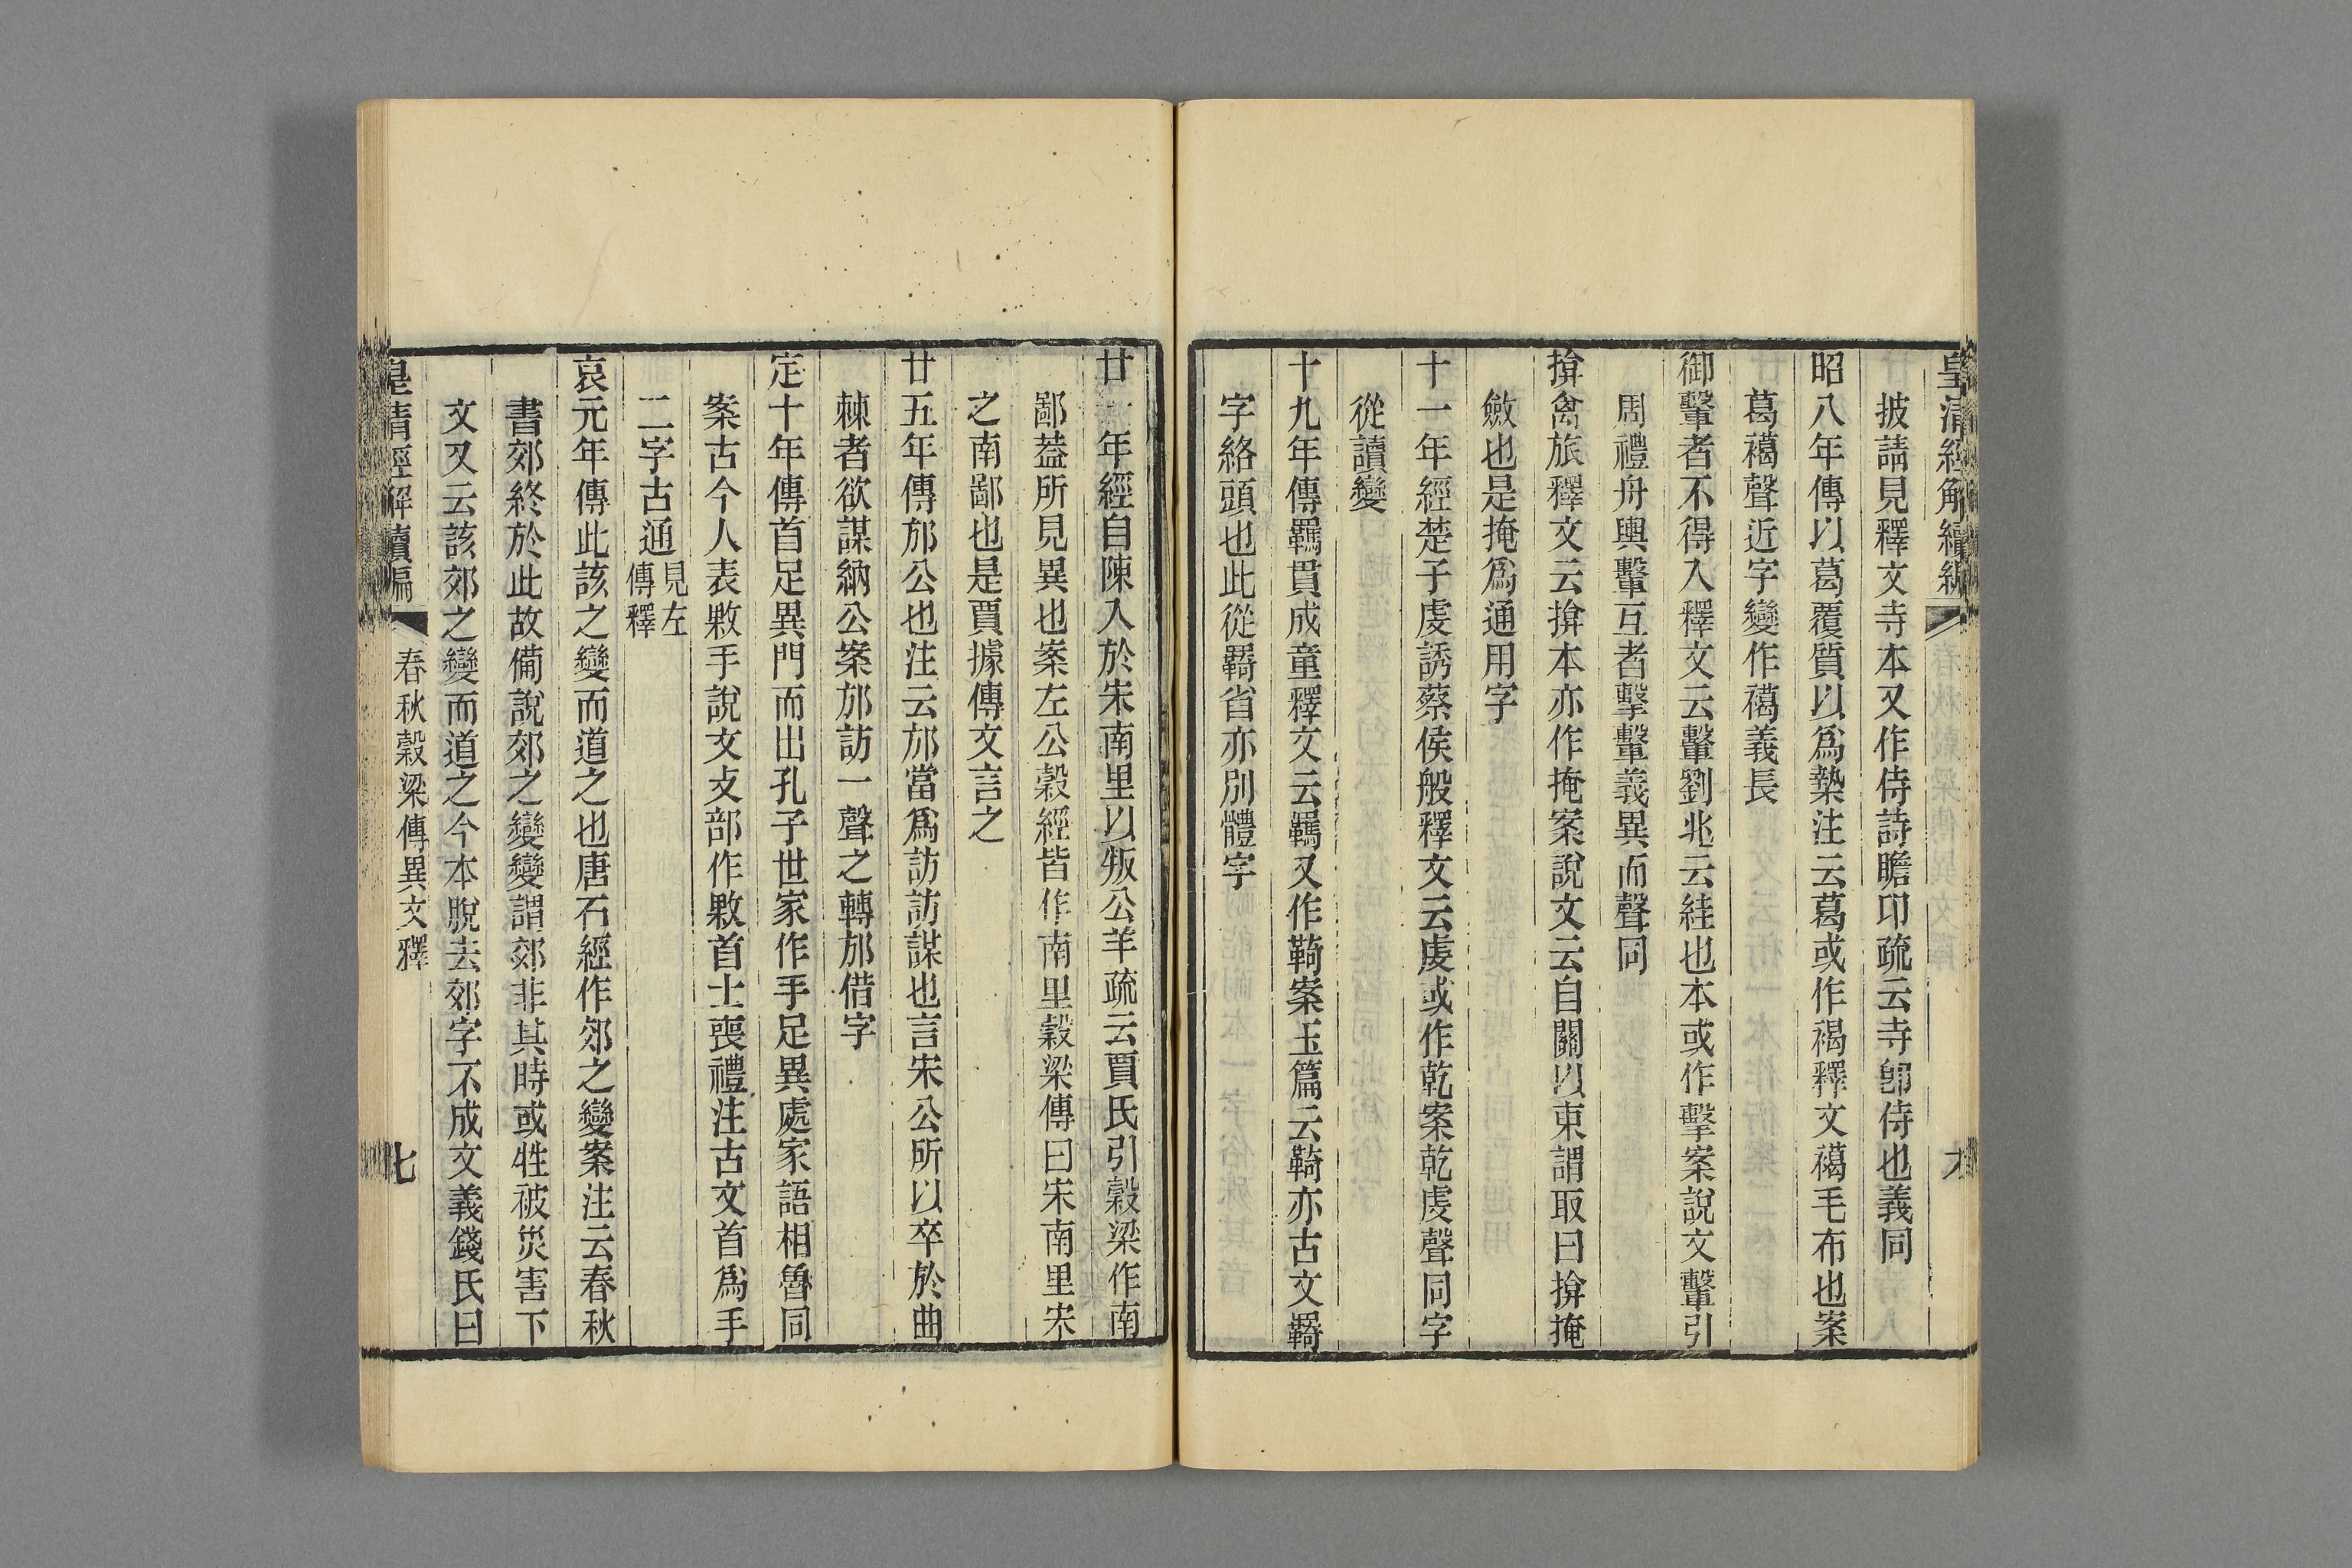 皇清經解續編
披請見釋文寺本又作侍詩瞻卬疏云寺卽侍也義同
昭八年傳以葛覆質以爲槷注云葛或作褐釋文䙐毛布也案
葛䙐聲近字變作䙐義長
御轚者不得入釋文云轚劉兆云絓也本或作擊案說文轚引
周禮舟輿轚互者擊轚義異而聲同
揜禽旅釋文云揜本亦作掩案說文云自關以東謂取曰揜掩
斂也是掩爲通用字
十一年經楚子虔誘蔡侯般釋文云虔或作乾案乾虔聲同字
從讀變
十九年傳羈貫成童釋文云羈又作䩭案玉篇云䩭亦古文羇
字絡頭也此從羇省亦別體字
廿一年經自陳入於宋南里以叛公羊疏云賈氏引穀梁作南
鄙葢所見異也案左公穀經皆作南里穀梁傳曰宋南里宋
之南鄙也是賈據傳文言之
廿五年傳邡公也注云邡當爲訪訪謀也言宋公所以卒於曲
棘者欲謀納公案邡訪一聲之轉邡借字
定十年傳首足異門而出孔子世家作手足異處家語相魯同
案古今人表敤手說文攴部作敤首士喪禮注古文首爲手
二字古通見左傳釋
哀元年傳此該之變而道之也唐石經作郊之變案注云春秋
書郊終於此故備說郊之變變謂郊非其時或牲被災害下
文又云該郊之變而道之今本脫去郊字不成文義錢氏曰
皇清經解續編 春秋穀梁傳異文釋 七